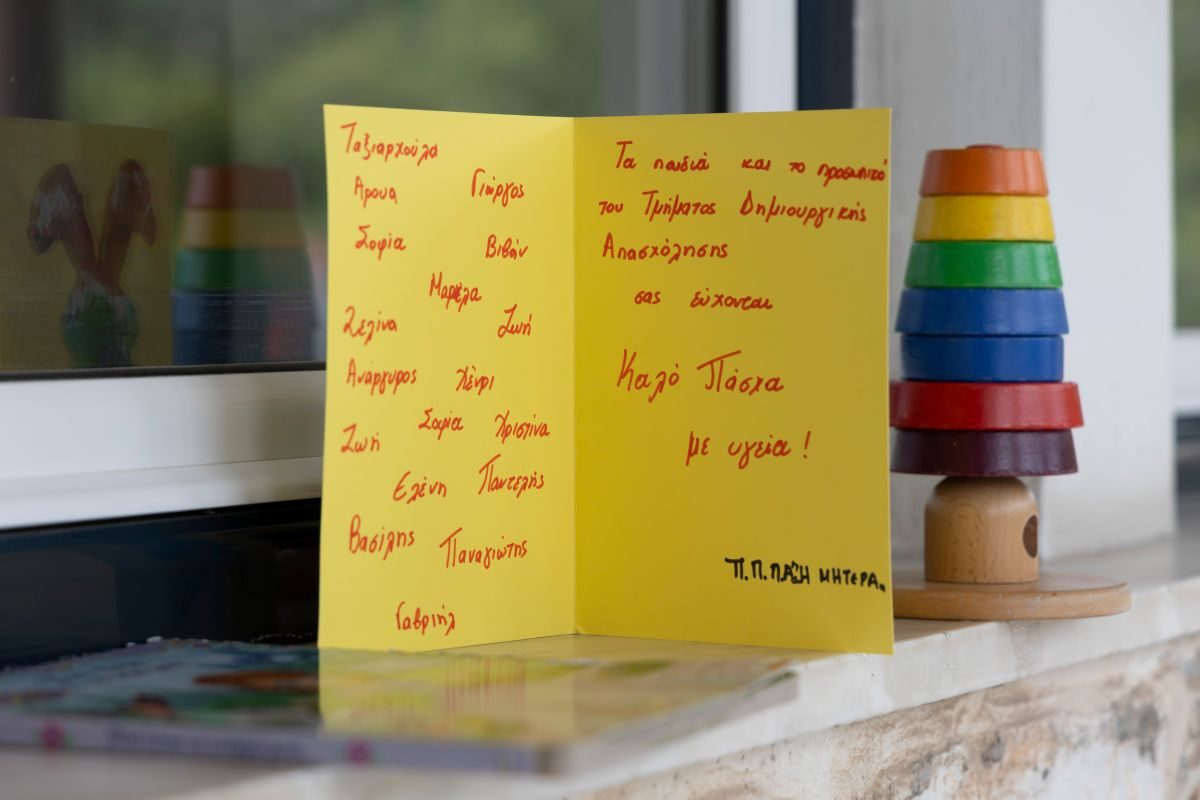 Ταξιαρχούλα
Αρουα Γιώργος
Σοφία Βιβάν
Μαριέλα
Σελίνα Ζωή
Ανάργυρος Χένρι
Σοφία Χριστίνα
Ζωή
Ελένη Παντελής
Βασίλης Παναγιώτης
Γαβριήλ
Τα παιδιά και το προσωπικό
του Τμήματος Δημιουργικής
Απασχόλησης
σας εύχονται
Καλό Πάσχα
με υγεία!
Π.Π. ΜΗΤΕΡΑ.